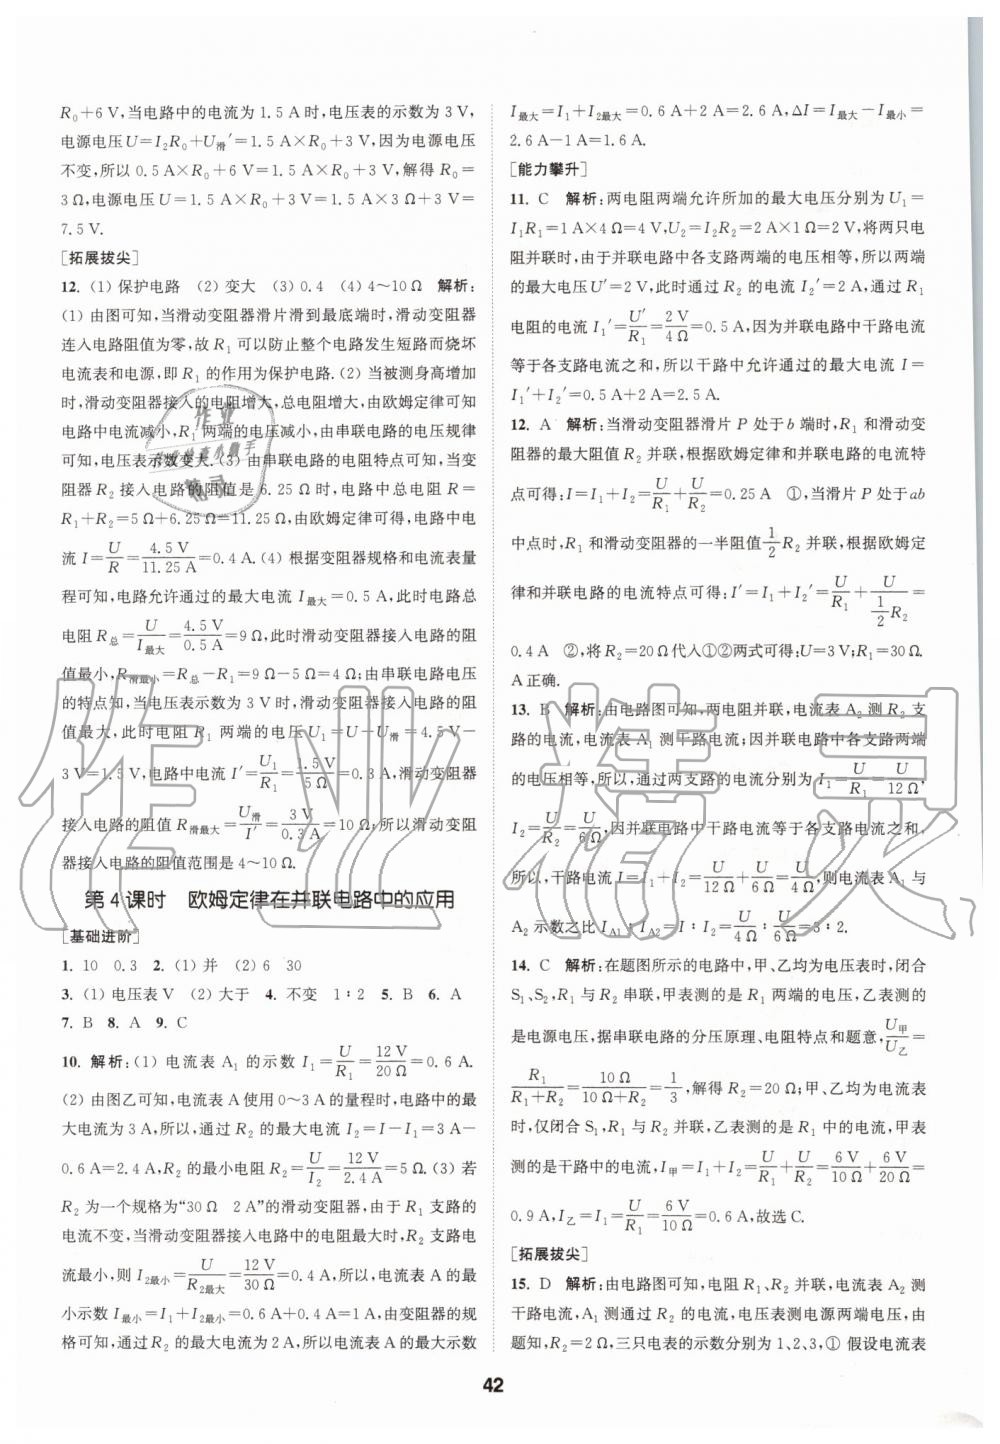 R₀+6 V,当电路中的电流为 1.5 A时,电压表的示数为 3 V,
电源电压U=I₂R₀+U滑′=1.5 A×R₀+3 V,因为电源电压
不变,所以 0.5 A×R₀+6 V=1.5 A×R₀+3 V,解得 R₀=
3 Ω,电源电压 U=1.5 A×R₀+3 V=1.5 A×3 Ω+3 V=
7.5 V.
[拓展拔尖]
12. (1) 保护电路 (2) 变大 (3) 0.4 (4) 4～10 Ω 解析:
(1) 由图可知,当滑动变阻器滑片滑到最底端时,滑动变阻器
连入电路阻值为零,故 R₁ 可以防止整个电路发生短路而烧坏
电流表和电源,即 R₁ 的作用为保护电路.(2) 当被测身高增加
时,滑动变阻器接入的电阻增大,总电阻增大,由欧姆定律可知
电路中电流减小,R₁ 两端的电压减小,由串联电路的电压规律
可知,电压表示数变大.(3) 由串联电路的电阻特点可知,当变
阻器 R₂ 接入电路的阻值是 6.25 Ω时,电路中总电阻 R=
R₁+R₂=5 Ω+6.25 Ω=11.25 Ω,由欧姆定律可得,电路中电
流 I=U/R=4.5 V/11.25 A=0.4 A.(4) 根据变阻器规格和电流表量
程可知,电路允许通过的最大电流 I最大=0.5 A,此时电路总
电阻 R总=U/I最大=4.5 V/0.5 A=9 Ω,此时滑动变阻器接入电路的阻
值最小,R滑最小=R总−R₁=9 Ω−5 Ω=4 Ω;由串联电路电压
的特点知,当电压表示数为 3 V 时,滑动变阻器接入电路的阻
值最大,此时电阻 R₁ 两端的电压 U₁=U−U滑=4.5 V−
3 V=1.5 V,电路中电流 I′=U₁/R₁=1.5 V/5 Ω=0.3 A,滑动变阻器
接入电路的阻值 R滑最大=U滑/I′=3 V/0.3 A=10 Ω;所以滑动变阻
器接入电路的阻值范围是 4～10 Ω.
第 4 课时 欧姆定律在并联电路中的应用
[基础进阶]
1. 10 0.3 2. (1) 并 (2) 6 30
3. (1) 电压表 V (2) 大于 4. 不变 1∶2 5. B 6. A
7. B 8. A 9. C
10. 解析:(1) 电流表 A₁ 的示数 I₁=U/R₁=12 V/20 Ω=0.6 A.
(2) 由图乙可知,电流表 A 使用 0～3 A 的量程时,电路中的最
大电流为 3 A,所以,通过 R₂ 的最大电流 I₂=I−I₁=3 A−
0.6 A=2.4 A,R₂ 的最小电阻 R₂=U/I₂=12 V/2.4 A=5 Ω.(3) 若
R₂ 为一个规格为“30 Ω 2 A”的滑动变阻器,由于 R₁ 支路的
电流不变,当滑动变阻器接入电路中的电阻最大时,R₂ 支路电
流最小,则 I₂最小=U/R₂最大=12 V/30 Ω=0.4 A,所以,电流表 A 的最
小示数 I最小=I₁+I₂最小=0.6 A+0.4 A=1 A;由变阻器的规
格可知,通过 R₂ 的最大电流为 2 A,所以电流表 A 的最大示数
I最大=I₁+I₂最大=0.6 A+2 A=2.6 A,ΔI=I最大−I最小=
2.6 A−1 A=1.6 A.
[能力攀升]
11. C 解析:两电阻两端允许所加的最大电压分别为 U₁=
I₁R₁=1 A×4 Ω=4 V,U₂=I₂R₂=2 A×1 Ω=2 V,将两只电
阻并联时,由于并联电路中各支路两端的电压相等,所以两端
的最大电压U′=2 V,此时通过 R₂ 的电流 I₂′=2 A,通过 R₁
电阻的电流 I₁′=U′/R₁=2 V/4 Ω=0.5 A,因为并联电路中干路电流
等于各支路电流之和,所以干路中允许通过的最大电流 I=
I₁′+I₂′=0.5 A+2 A=2.5 A.
12. A 解析:当滑动变阻器滑片 P 处于 b 端时,R₁ 和滑动变
阻器的最大阻值 R₂ 并联,根据欧姆定律和并联电路的电流特
点可得:I=I₁+I₂=U/R₁+U/R₂=0.25 A ①,当滑片 P 处于 ab
中点时,R₁ 和滑动变阻器的一半阻值 1/2 R₂ 并联,根据欧姆定
律和并联电路的电流特点可得:I′=I₁+I₂′=U/R₁+U/(1/2 R₂)=
0.4 A ②,将 R₂=20 Ω代入①②两式可得:U=3 V;R₁=30 Ω.
A 正确.
13. B 解析:由电路图可知,两电阻并联,电流表 A₂ 测 R₂ 支
路的电流,电流表 A₁ 测干路电流;因并联电路中各支路两端
的电压相等,所以,通过两支路的电流分别为 I₁=U/R₁=U/12 Ω,
I₂=U/R₂=U/6 Ω,因并联电路中干路电流等于各支路电流之和,
所以,干路电流 I=I₁+I₂=U/12 Ω+U/6 Ω=U/4 Ω,所以,电流表 A₁ 与
A₂ 示数之比 I_A1∶I_A2=I∶I₂=U/4 Ω∶U/6 Ω=3∶2.
14. C 解析:在题图所示的电路中,甲、乙均为电压表时,闭合
S₁、S₂,R₁ 与 R₂ 串联,甲表测的是 R₁ 两端的电压,乙表测的
是电源电压,据串联电路的分压原理、电阻特点和题意,U甲/U乙=
R₁/(R₁+R₂)=10 Ω/(10 Ω+R₂)=1/3,解得 R₂=20 Ω;甲、乙均为电流表
时,仅闭合 S₁,R₁ 与 R₂ 并联,乙表测的是 R₁ 中的电流,甲表
测的是干路中的电流,I甲=I₁+I₂=U/R₁+U/R₂=6 V/10 Ω+6 V/20 Ω=
0.9 A,I乙=I₁=U/R₁=6 V/10 Ω=0.6 A,故选 C.
[拓展拔尖]
15. D 解析:由电路图可知,电阻 R₁、R₂ 并联,电流表 A₂ 测
干路电流,A₁ 测通过 R₂ 的电流,电压表测电源两端电压,由
题知,R₂=2 Ω,三只电表的示数分别为 1、2、3,① 假设电流表
42
作业精灵